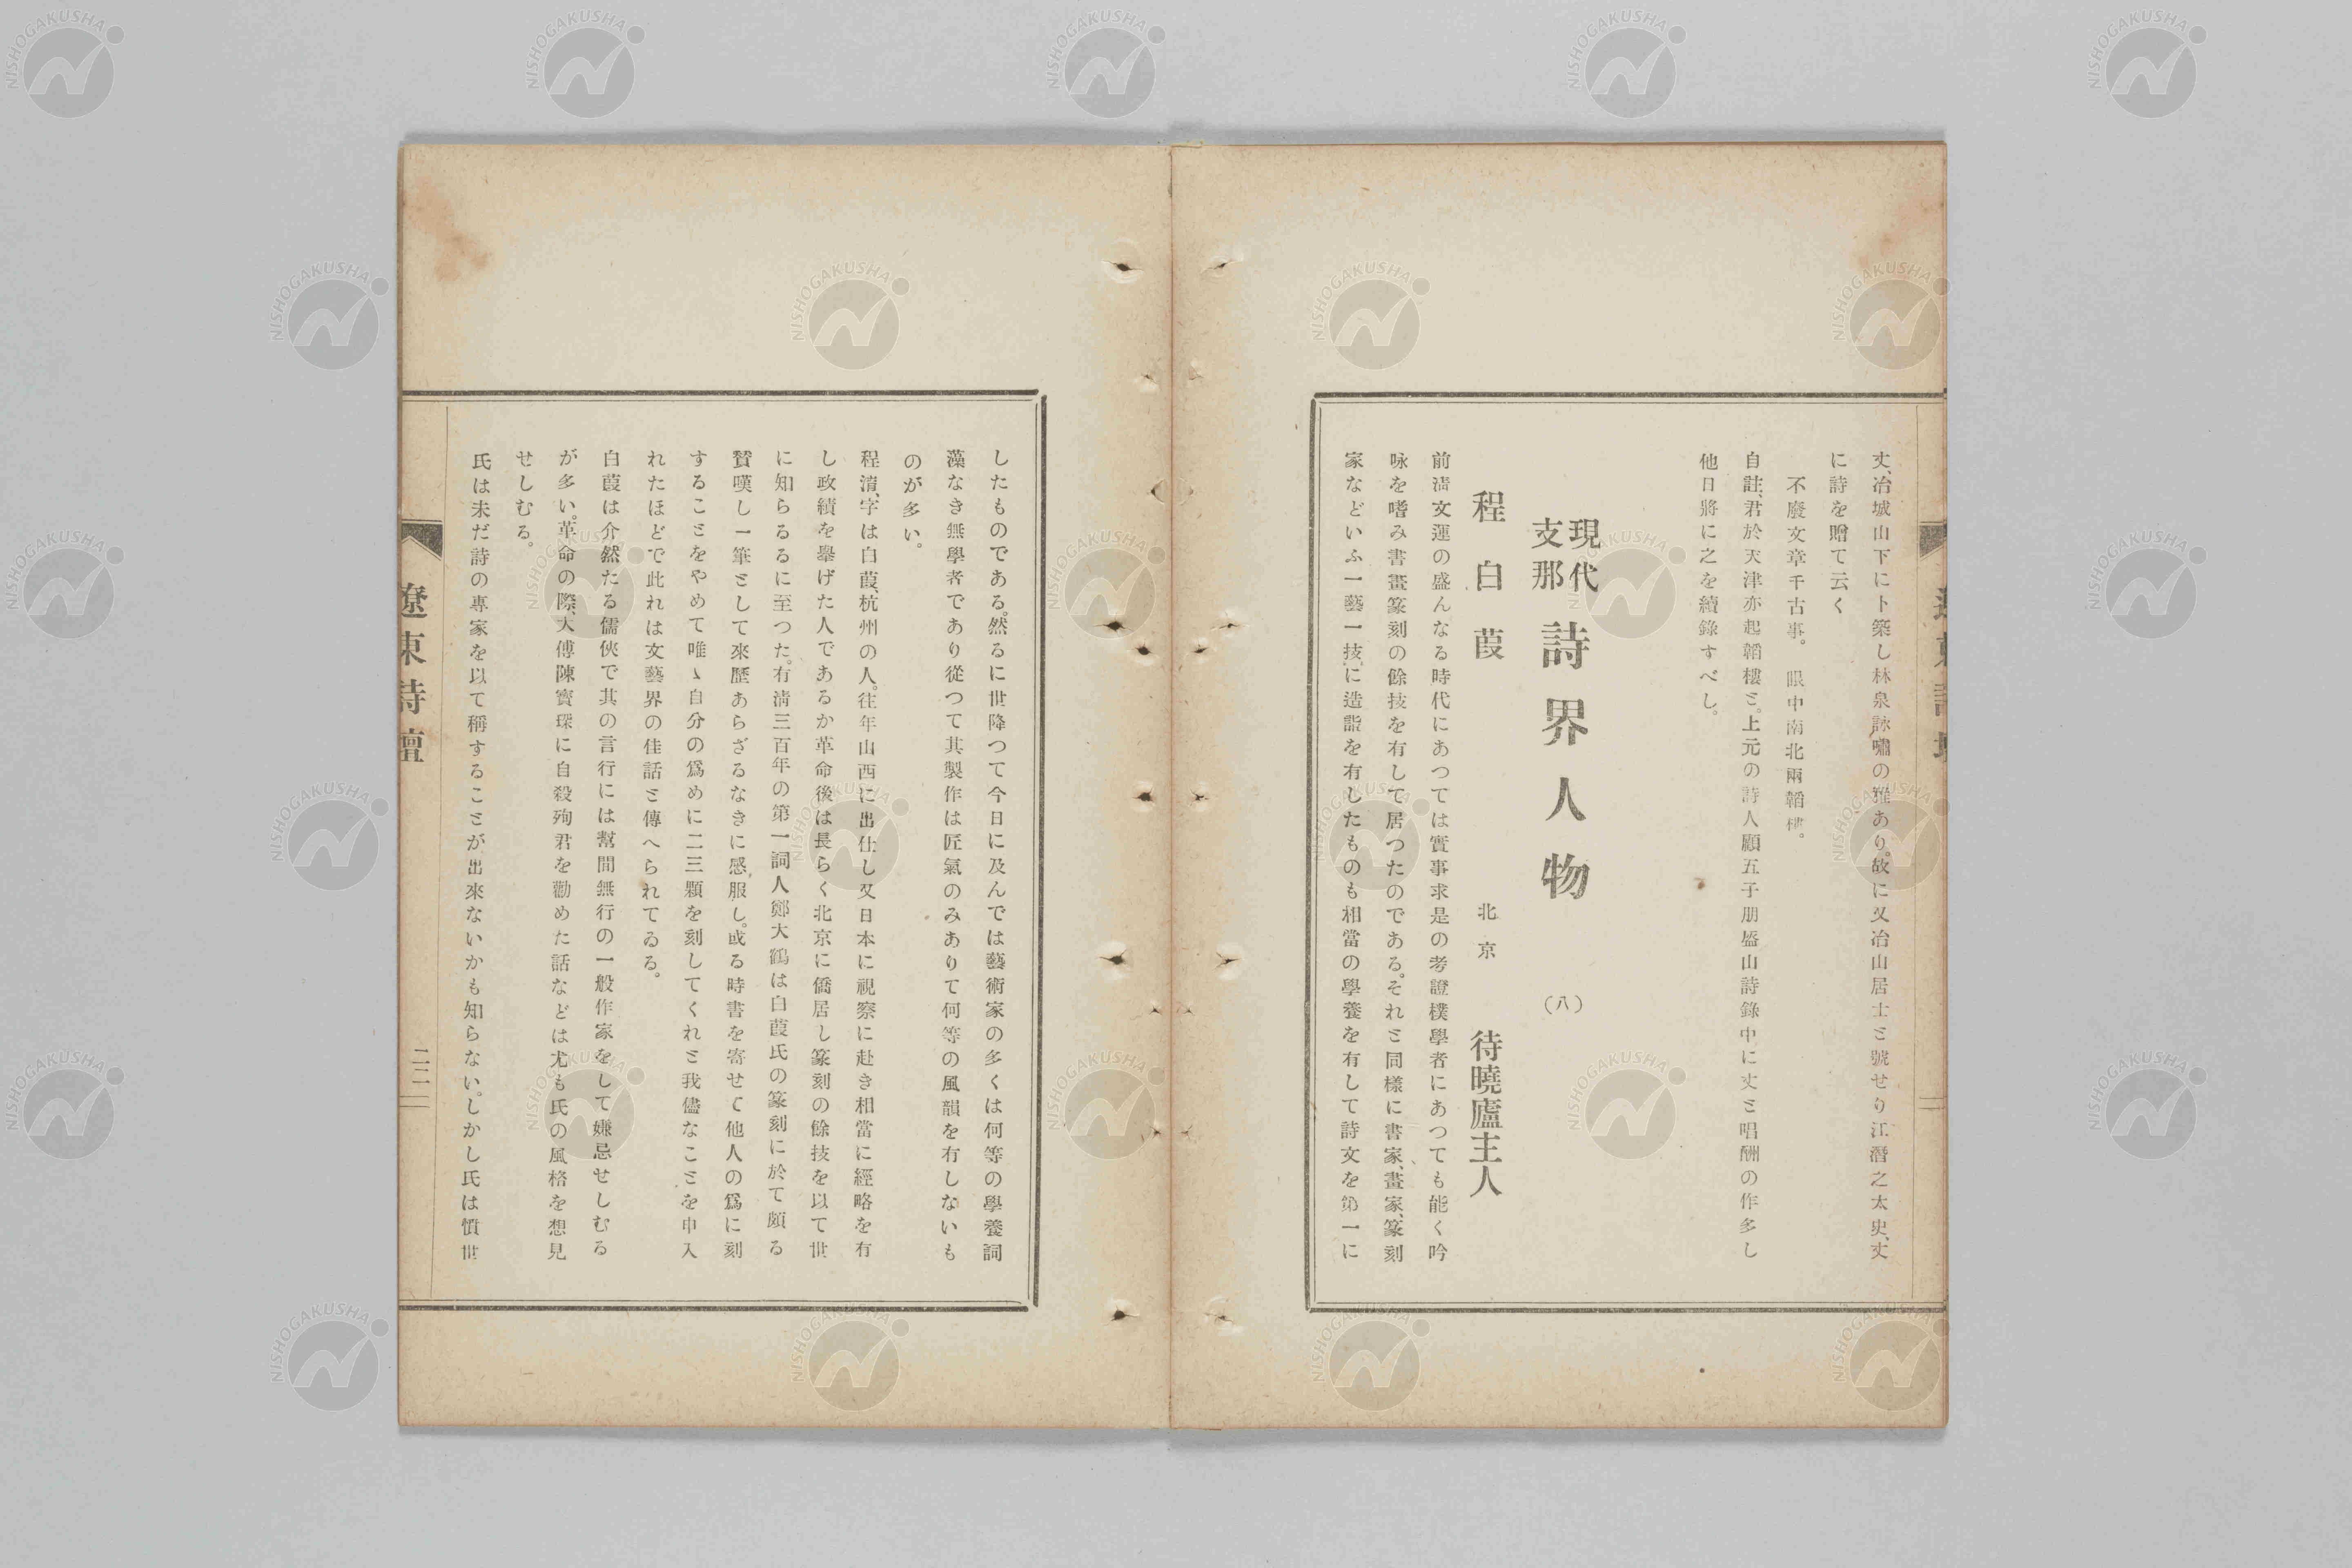 丈、冶城山下に卜築し林泉詠嘯の雅あり。故に又冶山居士と號せり江潛之太史、丈
に詩を贈て云く
不廢文章千古事。 眼中南北兩韜樓。
自註、君於天津亦起韜樓と。上元の詩人顧五子朋盛山詩錄中に丈と唱酬の作多し
他日將に之を續錄すべし。
現代支那詩界人物 (八)
程白葭 北京 待曉廬主人
前淸文運の盛んなる時代にあつては實事求是の考證樸學者にあつても能く吟
咏を嗜み書畫篆刻の餘技を有して居つたのである。それと同樣に書家、畫家、篆刻
家などいふ一藝一技に造詣を有したものも相當の學養を有して詩文を第一に
したものである。然るに世降つて今日に及んでは藝術家の多くは何等の學養詞
藻なき無學者であり從つて其製作は匠氣のみありて何等の風韻を有しないも
のが多い。
程淯、字は白葭、杭州の人。往年山西に出仕し又日本に視察に赴き相當に經略を有
し政績を擧げた人であるか革命後は長らく北京に僑居し篆刻の餘技を以て世
に知らるるに至つた。有淸三百年の第一詞人鄭大鶴は白葭氏の篆刻に於て頗る
賛嘆し一筆として來歷あらざるなきに感服し。或る時書を寄せて他人の爲に刻
することをやめて唯〻自分の爲めに二三顆を刻してくれと我儘なことを申入
れたほどで此れは文藝界の佳話と傳へられてゐる。
白葭は介然たる儒俠で其の言行には幫閒無行の一般作家をして嫌忌せしむる
が多い。革命の際、大傅陳寳琛に自殺殉君を勸めた話などは尤も氏の風格を想見
せしむる。
氏は未だ詩の專家を以て稱することが出來ないかも知らない。しかし氏は憤世
遼東詩壇
二二